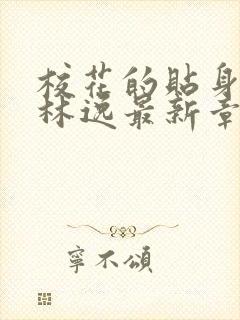 校花的貼身
林逸最新章
寧不頌